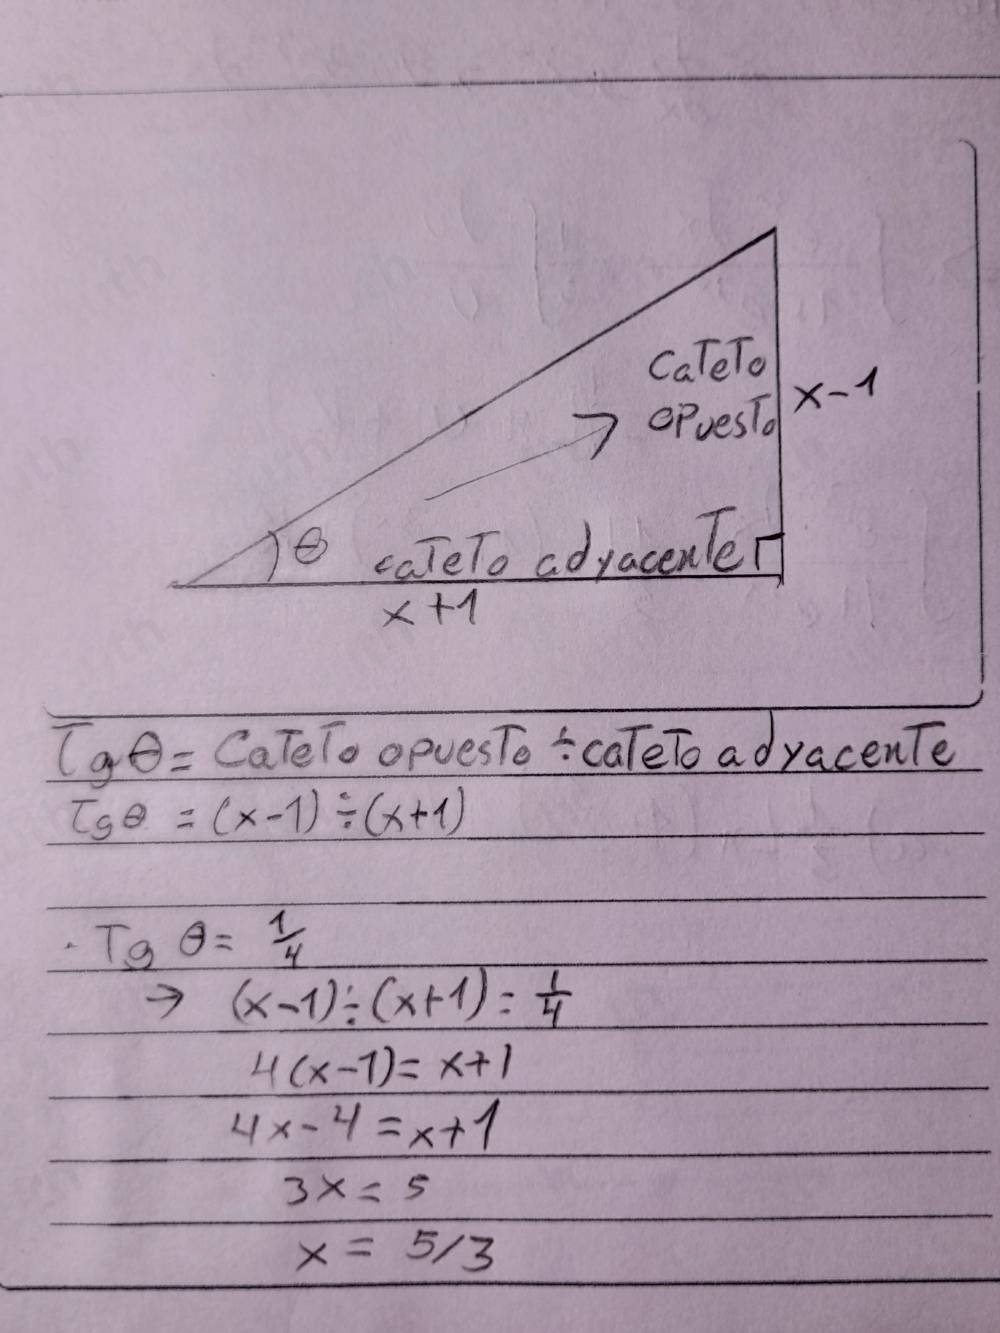 CaTeTo
oPuesTo
x-1
θ
caTeTo adyacenTe
x+1
Tgθ = CaTeTo opuesTo ÷ caTeTo adyacenTe
Tgθ = (x-1) ÷ (x+1)
· Tg θ = 1/4
→ (x-1) ÷ (x+1) = 1/4
4(x-1) = x+1
4x-4 = x+1
3x = 5
x = 5/3